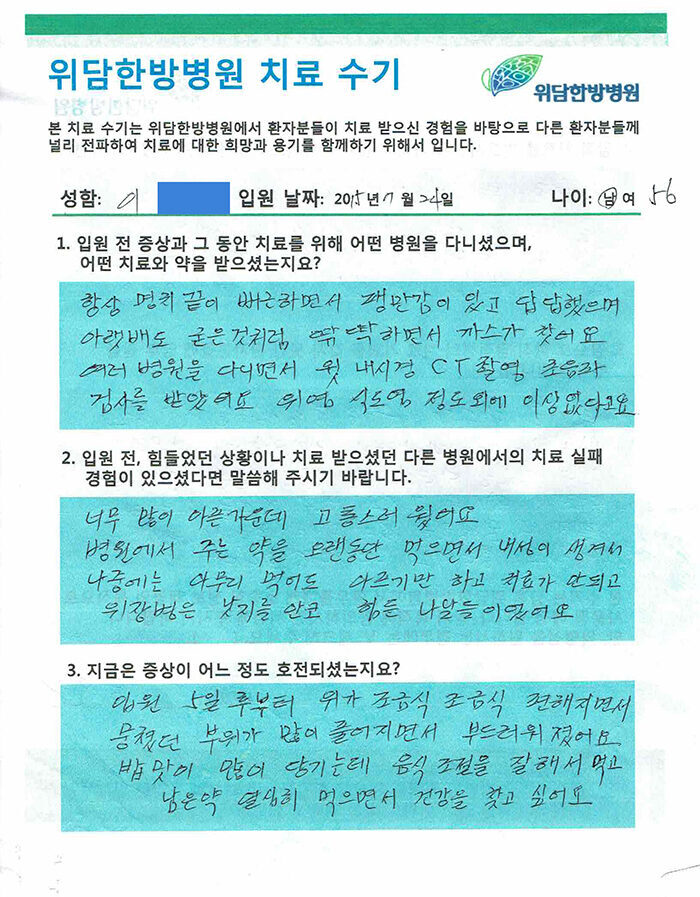 위담한방병원 치료 수기
위담한방병원
본 치료 수기는 위담한방병원에서 환자분들이 치료 받으신 경험을 바탕으로 다른 환자분들께
널리 전파하여 치료에 대한 희망과 용기를 함께하기 위해서 입니다.
성함: 이 입원 날짜: 2015년 7월 24일 나이: 남 여 56
1. 입원 전 증상과 그 동안 치료를 위해 어떤 병원을 다니셨으며,
어떤 치료와 약을 받으셨는지요?
항상 명치 끝이 뻐근하면서 팽만감이 있고 답답했으며
아랫배도 굳은것처럼 딱딱하면서 까스가 찾어요
여러 병원을 다니면서 윗 내시경 CT촬영 초음파
검사를 받았어요 위염 식도염 정도외에 이상없다고요
2. 입원 전, 힘들었던 상황이나 치료 받으셨던 다른 병원에서의 치료 실패
경험이 있으셨다면 말씀해 주시기 바랍니다.
너무 많이 아픈가운데 고통스러 웠어요
병원에서 주는 약을 오랜동안 먹으면서 내성이 생겨서
나중에는 아무리 먹어도 아프기만 하고 치료가 안되고
위장병은 낫지를 안코 힘든 나날들이였어요
3. 지금은 증상이 어느 정도 호전되셨는지요?
입원 5일 후부터 위가 조금식 조금식 편해지면서
뭉쳤던 부위가 많이 풀어지면서 부드러워 졌어요
밥맛이 많이 당기는데 음식 조절을 잘해서 먹고
남은약 열심히 먹으면서 건강을 찾고 싶어요